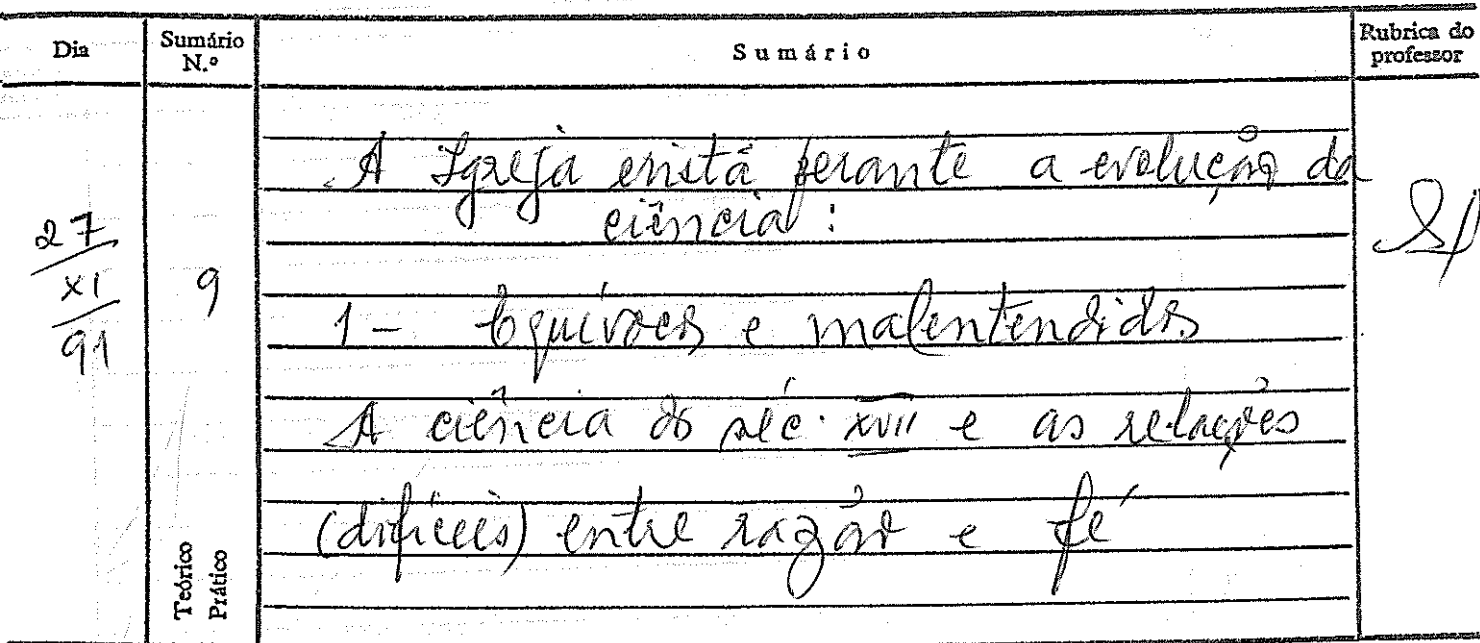 Dia
Sumário N.º
Sumário
Rubrica do professor
27/XI/91
9
A Igreja cristã perante a evolução da
ciência:
1 - Equívocos e malentendidos
A ciência do séc. XVII e as relações
(difíceis) entre razão e fé
Teórico
Prático